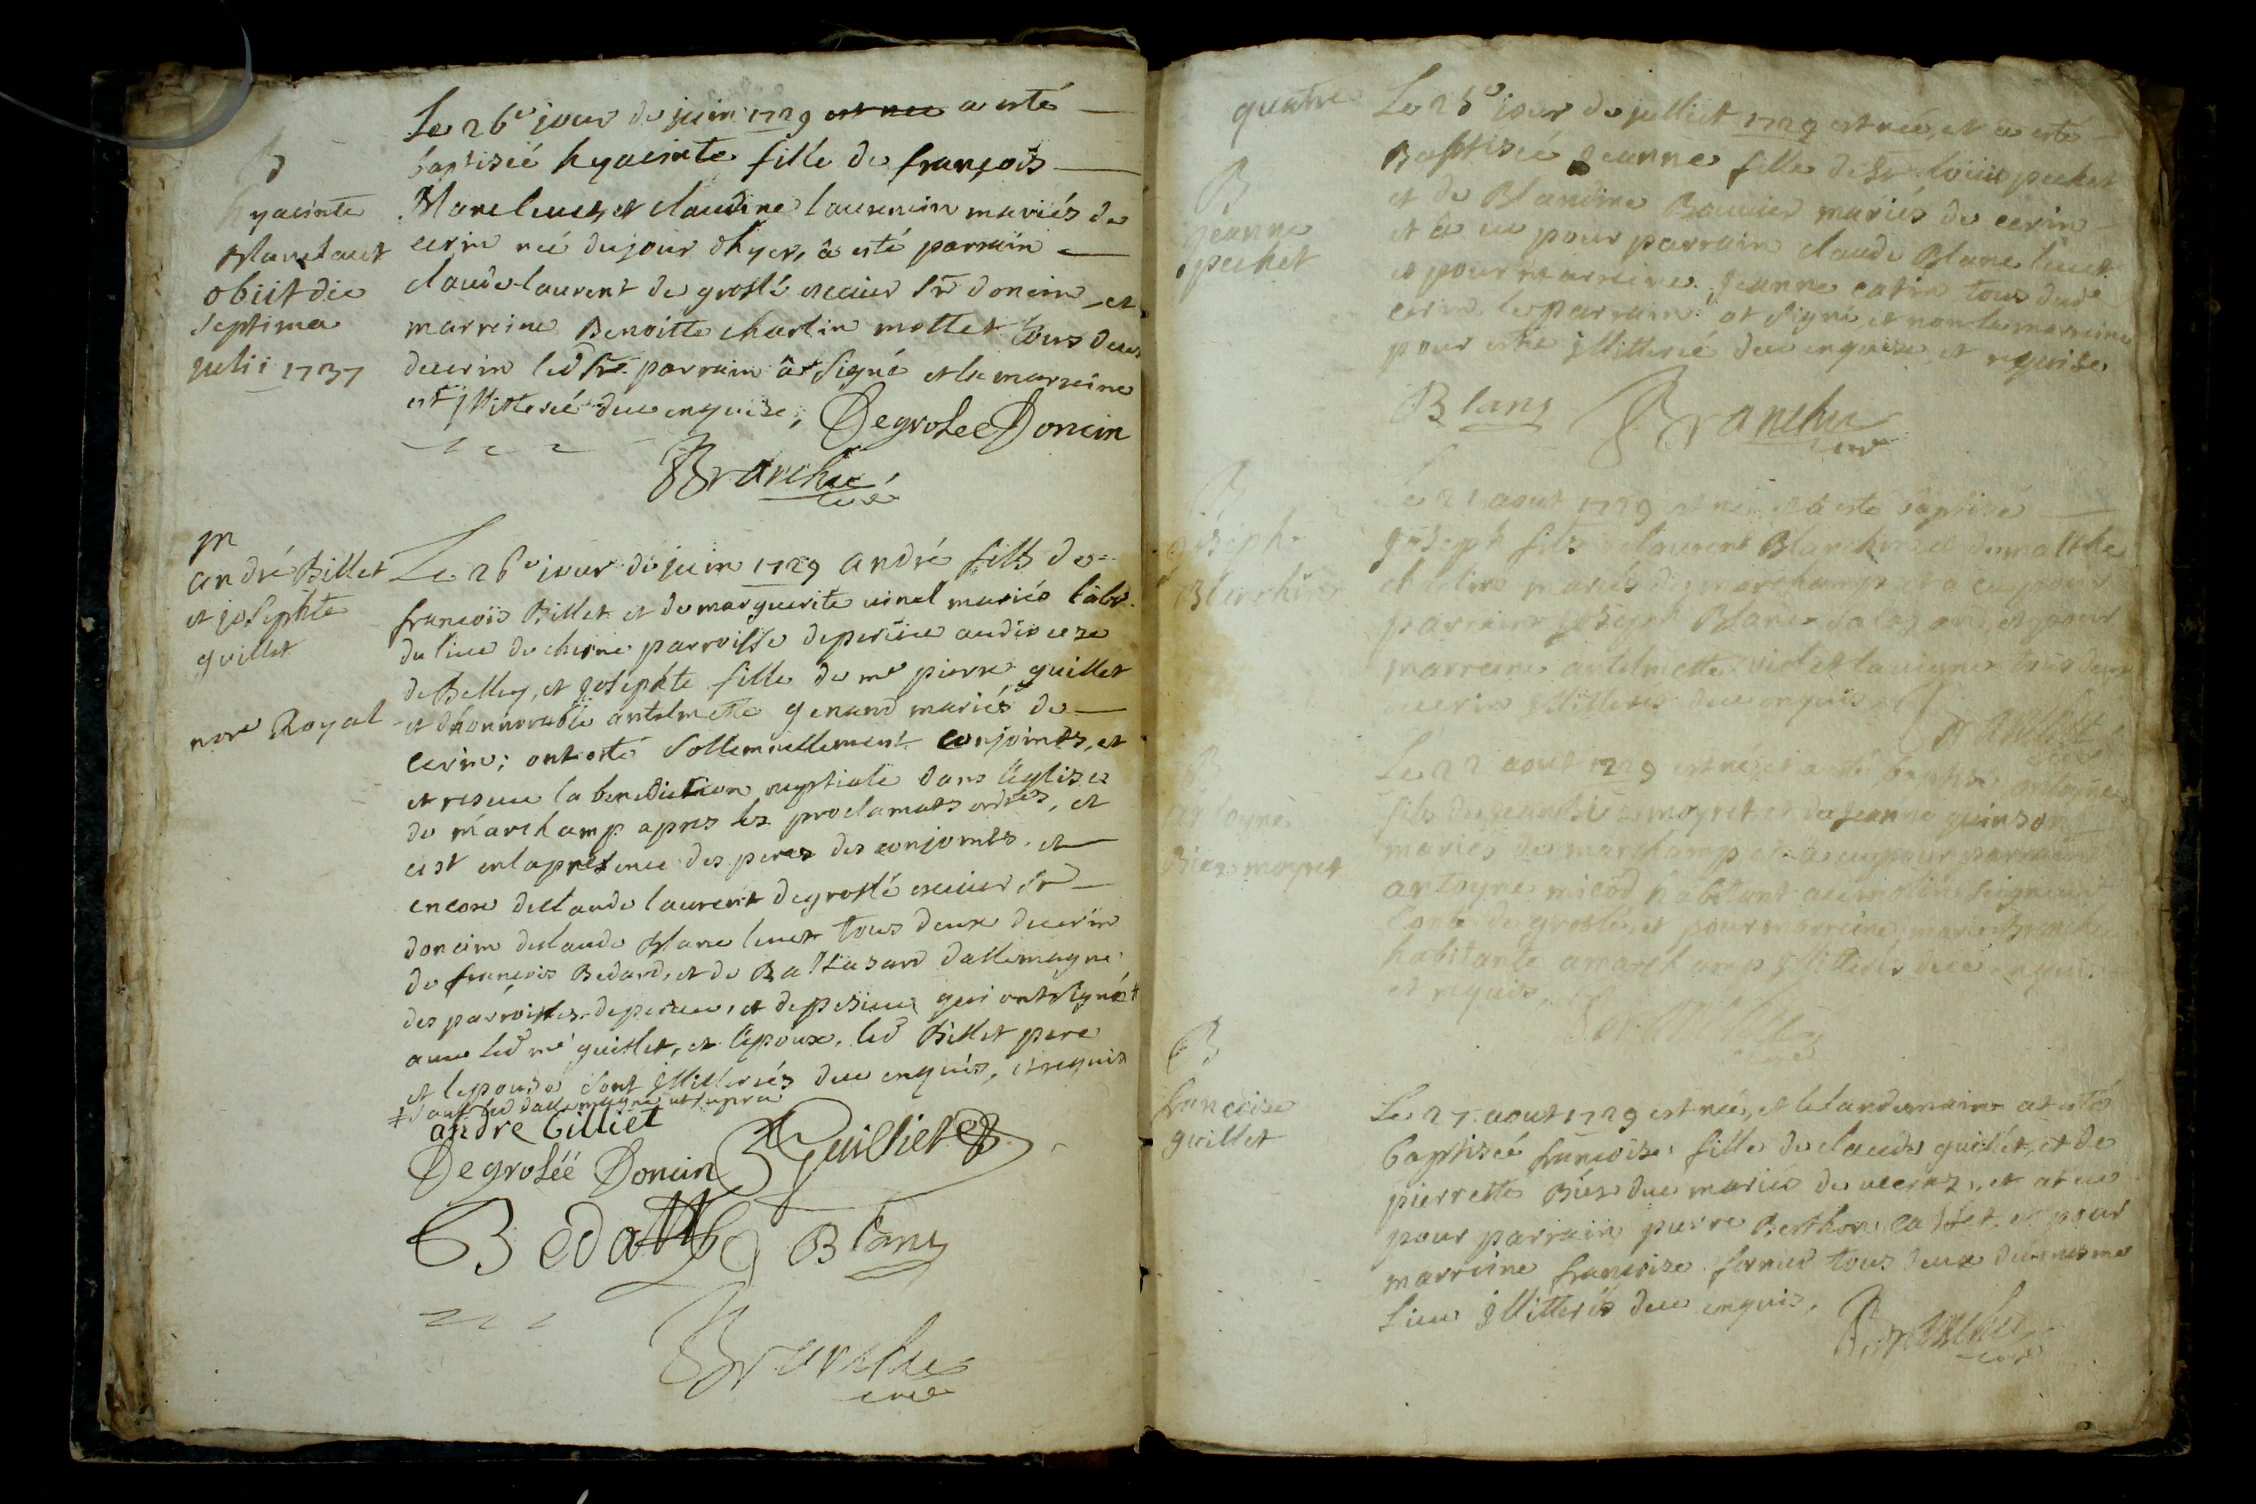 B
hyacinte
Blanc lauet
obiit die
septima
julii 1737
Le 26e jour de juin 1729 est nee a esté
baptisée hyacinte fille de françois
Blanc lucet et claudine laurencin mariés de
cerin née du jour d'hyer, à esté parrain
claude laurent de groslé ecuier sr doncin et
marreine Benoitte charlin mottet tous deux
de cerin led sr parrain à signé et la marreine
est jllitterée due enquise, Degrolee Doncin
Branchu
curé
m
andré Billet
et josephte
guillet
nore Royal
Le 26e jour de juin 1729 andré fils de
françois Billet et de marguerite vinel mariés lab.
du lieu de chesne parroisse de perieu au dioceze
de Belley, et josephte fille de me pierre guillet
et d'honnorable antelmette genand mariés de
cerin; ont esté sollemnellement conjoints, et
et receu la benediction nuptiale dans l'eglise
de marchamp apres les proclamats ordres, et
c'est en la presence des peres des conjoints, et
encore de claude laurent de groslé ecuier sr
doncin de claude Blanc lucet tous deux de cerin
de françois Bedard, et de Baltasard dallemagne
des parroisses de perieu, et de pesieu, qui ont signé ‡
avec led me guillet, et l'epoux, led Billet pere
et l'epouse sont jllitterés due enquis, et requis
‡ sauf led dallemagne ut supra
andre billiet
Guilliet
Degroléé Doncin
Bedatt
Blanc
Branchu
curé
quatre
B
jeanne
pechet
Le 25e jour de julliet 1729 est née, et a esté
Baptisée jeanne fille de sr louis pechet
et de Blandine Bouvier mariés de cerin
et a eu pour parrain claude Blanc lucet
et pour marreine jeanne catin tous deux de
cerin le parrain at signé et non la marreine
pour estre jllitterée due enquise et requise
Blanc
Branchu
curé
B
joseph
Blanchin
Le 21 aout 1729 est né et a esté baptisé
joseph fils de laurent Blanchin et de marthe
mariés de marchamp et a eu pour
parrain joseph Blanc et pour
marreine antelmette tous deux
de cerin jllitterés due enquis
Branchu
curé
B
antoyne
moyret
Le 22 aout 1729 est né, et a esté baptisé antoyne
fils de jean moyret et de jeanne quinson
mariés de marchamp et a eu pour parrain
antoyne micod habitant au molin seigneur
comte de groslé, et pour marreine marie Branchu
habitante a marchamp jllitterés due enquis
et requis
Branchu
curé
B
françoise
guillet
Le 27 aout 1729 est née, et le landemain at esté
baptisée françoise fille de claude guillet, et de
pierrette mariés de et at eu
pour parrain pierre Berthon et pour
marreine françoise fornier tous deux du mesme
lieu jllitterés due enquis.
Branchu
curé